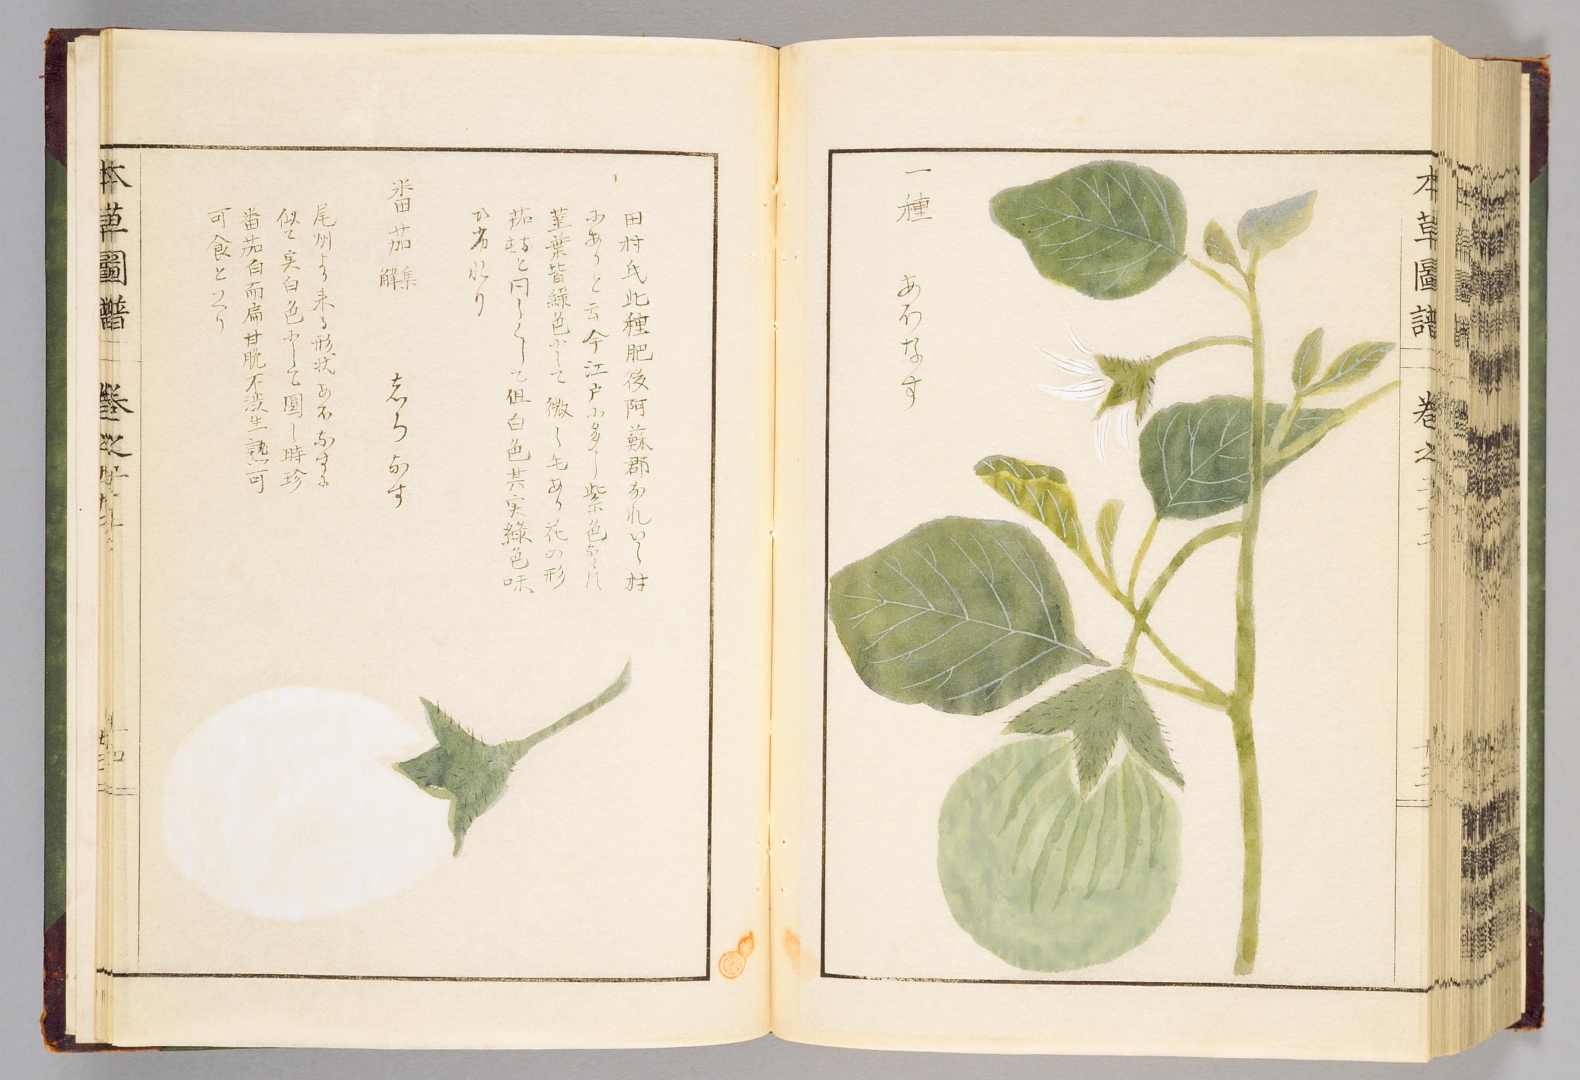 本草圖譜 卷之
一種 あおなす
田村氏此種肥後阿蘇郡
にありと云今江戸に多し紫色
茎葉皆緑色にして微し毛あり花の形
茄と同しくして但白色其実緑色味
ひ劣れり
番茄 集解 志ろなす
尾州より来る形状あおなすに
似て実白色にして圓し時珍
番茄白而扁甘脆不渋生熟可
可食といへり
本草圖譜 卷之